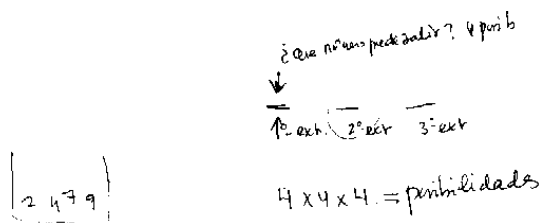 ¿Que número puede salir? 4 posib
1º ext. 2º ext 3º ext
2 4 7 9
4 x 4 x 4 = posibilidades